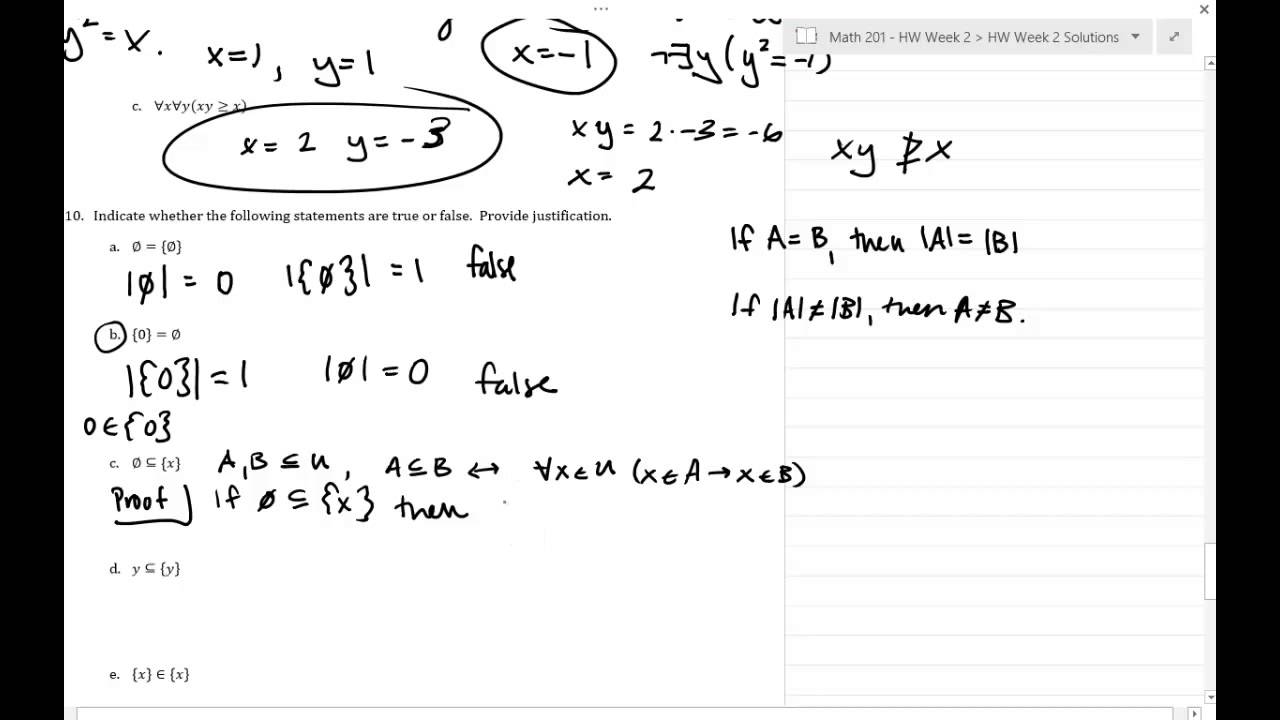 y² = x.
x=1, y=1
0
x=-1
¬∃y(y²=-1)
Math 201 - HW Week 2 > HW Week 2 Solutions
c. ∀x∀y(xy ≥ x)
x= 2 y= -3
xy = 2·-3 = -6
x = 2
xy ≱ x
10. Indicate whether the following statements are true or false. Provide justification.
a. ∅ = {∅}
|∅| = 0 |{∅}| = 1 false
If A=B, then |A|=|B|
If |A|≠|B|, then A≠B.
b. {0} = ∅
|{0}| = 1 |∅| = 0 false
0∈{0}
c. ∅ ⊆ {x} A,B ⊆ U, A⊆B ↔ ∀x∈U (x∈A→x∈B)
Proof If ∅ ⊆ {x} then
d. y ⊆ {y}
e. {x} ∈ {x}